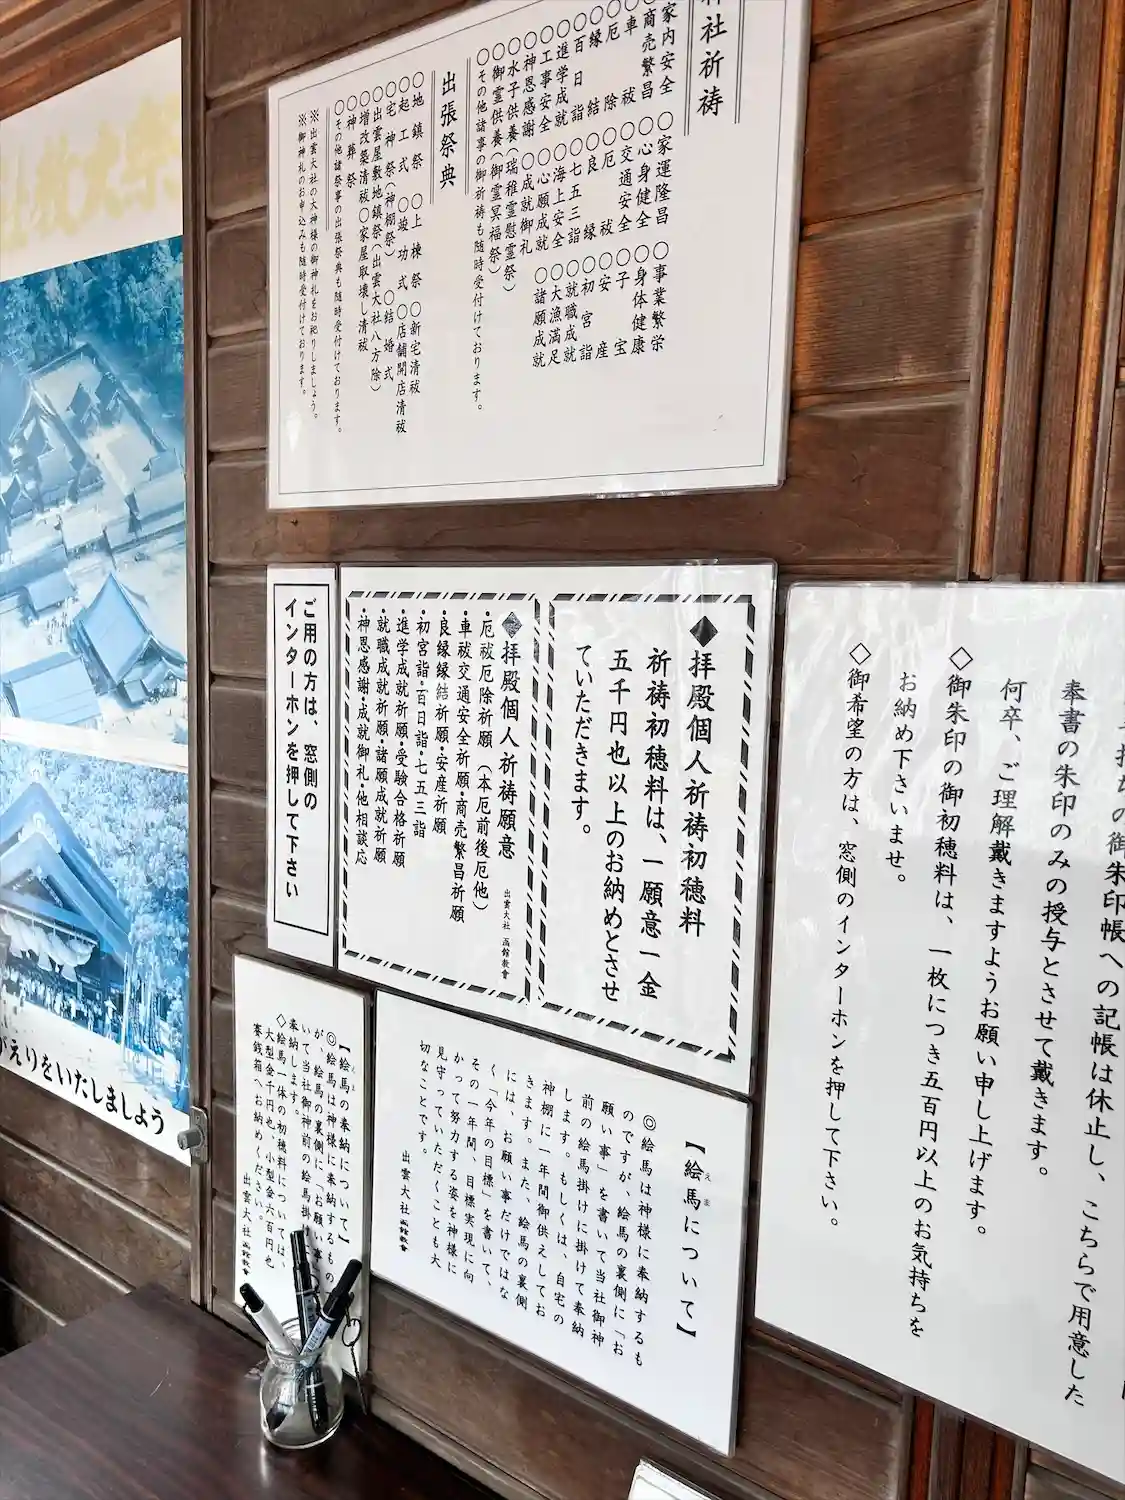 社祈祷
家内安全 〇家運隆昌 〇事業繁栄
商売繁昌 〇心身健全 〇身体健康
車祓 〇交通安全 〇子宝
〇厄除 〇厄祓 〇安産
〇縁結 〇良縁 〇初宮詣
〇百日詣 〇七五三詣 〇就職成就
〇進学成就 〇海上安全 〇大漁満足
〇工事安全 〇心願成就 〇諸願成就
〇神恩感謝 〇成就御礼
〇水子供養(瑞稚霊慰霊祭)
〇御霊供養(御霊冥福祭)
〇その他諸事の御祈祷も随時受付けております。
出張祭典
〇地鎮祭 〇上棟祭 〇新宅清祓
〇起工式 〇竣功式 〇店舗開店清祓
〇宅神祭(神棚祭) 〇結婚式
〇出雲屋敷地鎮祭(出雲大社八方除)
〇増改築清祓 〇家屋取壊し清祓
〇神葬祭
〇その他諸祭事の出張祭典も随時受付けております。
※出雲大社の大神様の御神札をお祀りしましょう。
※御神札のお申込みも随時受付けております。
奉書の朱印のみの授与とさせて戴きます。
何卒、ご理解戴きますようお願い申し上げます。
◇御朱印の御初穂料は、一枚につき五百円以上のお気持ちを
お納め下さいませ。
◇御希望の方は、窓側のインターホンを押して下さい。
◆拝殿個人祈祷初穂料
祈祷初穂料は、一願意一金
五千円也以上のお納めとさせ
ていただきます。
◆拝殿個人祈祷願意
出雲大社 函館教會
・厄祓厄除祈願(本厄前後厄他)
・車祓交通安全祈願・商売繁昌祈願
・良縁縁結祈願・安産祈願
・初宮詣・百日詣・七五三詣
・進学成就祈願・受験合格祈願
・就職成就祈願・諸願成就祈願
・神恩感謝・成就御礼・他相談応
ご用の方は、窓側の
インターホンを押して下さい
【絵馬について】
えま
◎絵馬は神様に奉納するも
のですが、絵馬の裏側に「お
願い事」を書いて当社御神
前の絵馬掛けに掛けて奉納
します。もしくは、自宅の
神棚に一年間御供えしてお
きます。また、絵馬の裏側
には、お願い事だけではな
く「今年の目標」を書いて、
その一年間、目標実現に向
かって努力する姿を神様に
見守っていただくことも大
切なことです。
出雲大社 函館教會
【絵馬の奉納について】
えま
◎絵馬は神様に奉納するもの
が、絵馬の裏側に「お願い事
いて当社御神前の絵馬掛
奉納します。
◇絵馬一体の初穂料については、
大型金千円也、小型金六百円也
賽銭箱へお納めください。
出雲大社 函館教會
がえりをいたしましょう